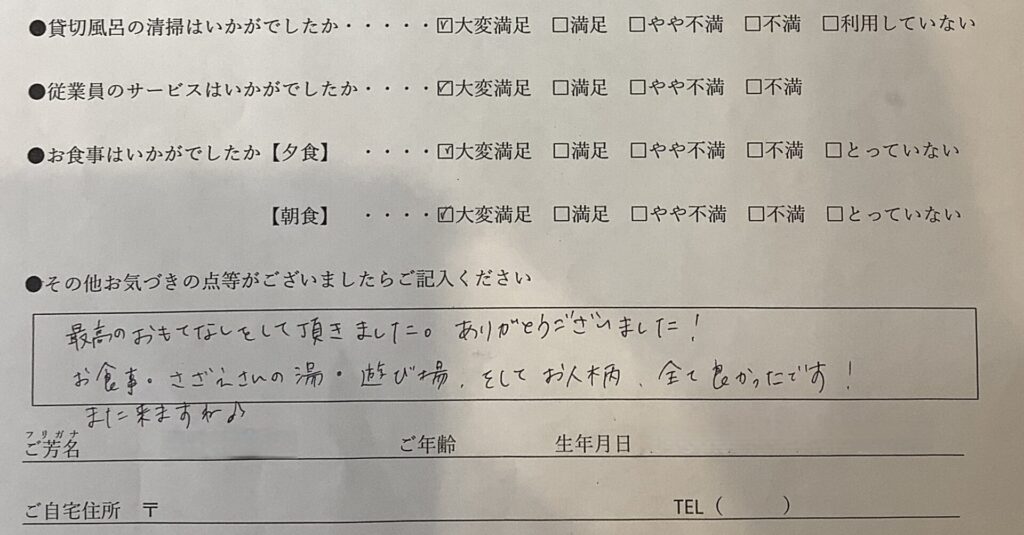 ●貸切風呂の清掃はいかがでしたか・・・・・☑大変満足 □満足 □やや不満 □不満 □利用していない
●従業員のサービスはいかがでしたか・・・・・☑大変満足 □満足 □やや不満 □不満
●お食事はいかがでしたか【夕食】 ・・・・☑大変満足 □満足 □やや不満 □不満 □とっていない
【朝食】 ・・・・☑大変満足 □満足 □やや不満 □不満 □とっていない
●その他お気づきの点等がございましたらご記入ください
最高のおもてなしをして頂きました。ありがとうございました!
お食事・さざえさんの湯・遊び場、そしてお人柄、全て良かったです!
また来ますね♪
フリガナ
ご芳名 ご年齢 生年月日
ご自宅住所 〒 TEL( )